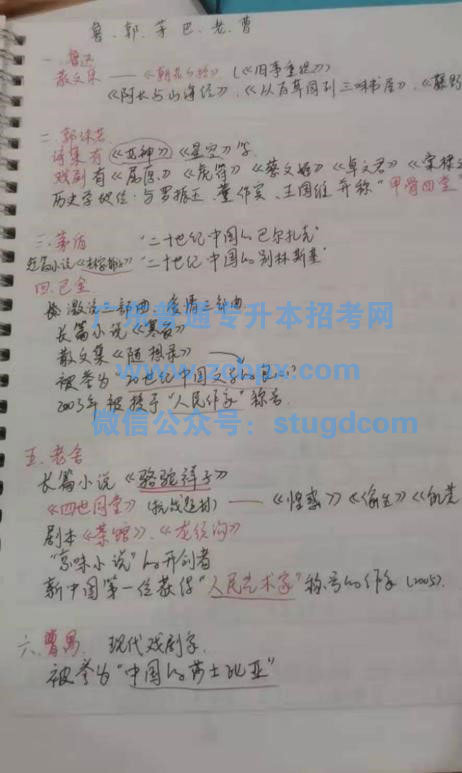 鲁.郭.茅.巴.老.曹
一.鲁迅
散文集——《朝花夕拾》(《旧事重提》)
《阿长与山海经》、《从百草园到三味书屋》、《藤野
二.郭沫若
诗集有《女神》《星空》等
戏剧有《屈原》《虎符》《蔡文姬》《卓文君》《棠棣之
历史学地位:与罗振玉、董作宾、王国维并称"甲骨四堂"
三.茅盾 "二十世纪中国的巴尔扎克"
短篇小说 "二十世纪中国的别林斯基"
四.巴金
激流三部曲 爱情三部曲
长篇小说《寒夜》
散文集《随想录》
被誉为"20世纪中国文学的良心"
2003年被授予"人民作家"称号
广州普通专升本招考网
www.zsbnx.com
微信公众号:stugdcom
五.老舍
长篇小说《骆驼祥子》
《四世同堂》(抗战题材)——《惶惑》《偷生》《饥荒
剧本《茶馆》、《龙须沟》
"京味小说"的开创者
新中国第一位获得"人民艺术家"称号的作家(2005).
六.曹禺 现代戏剧家.
被誉为"中国的莎士比亚"